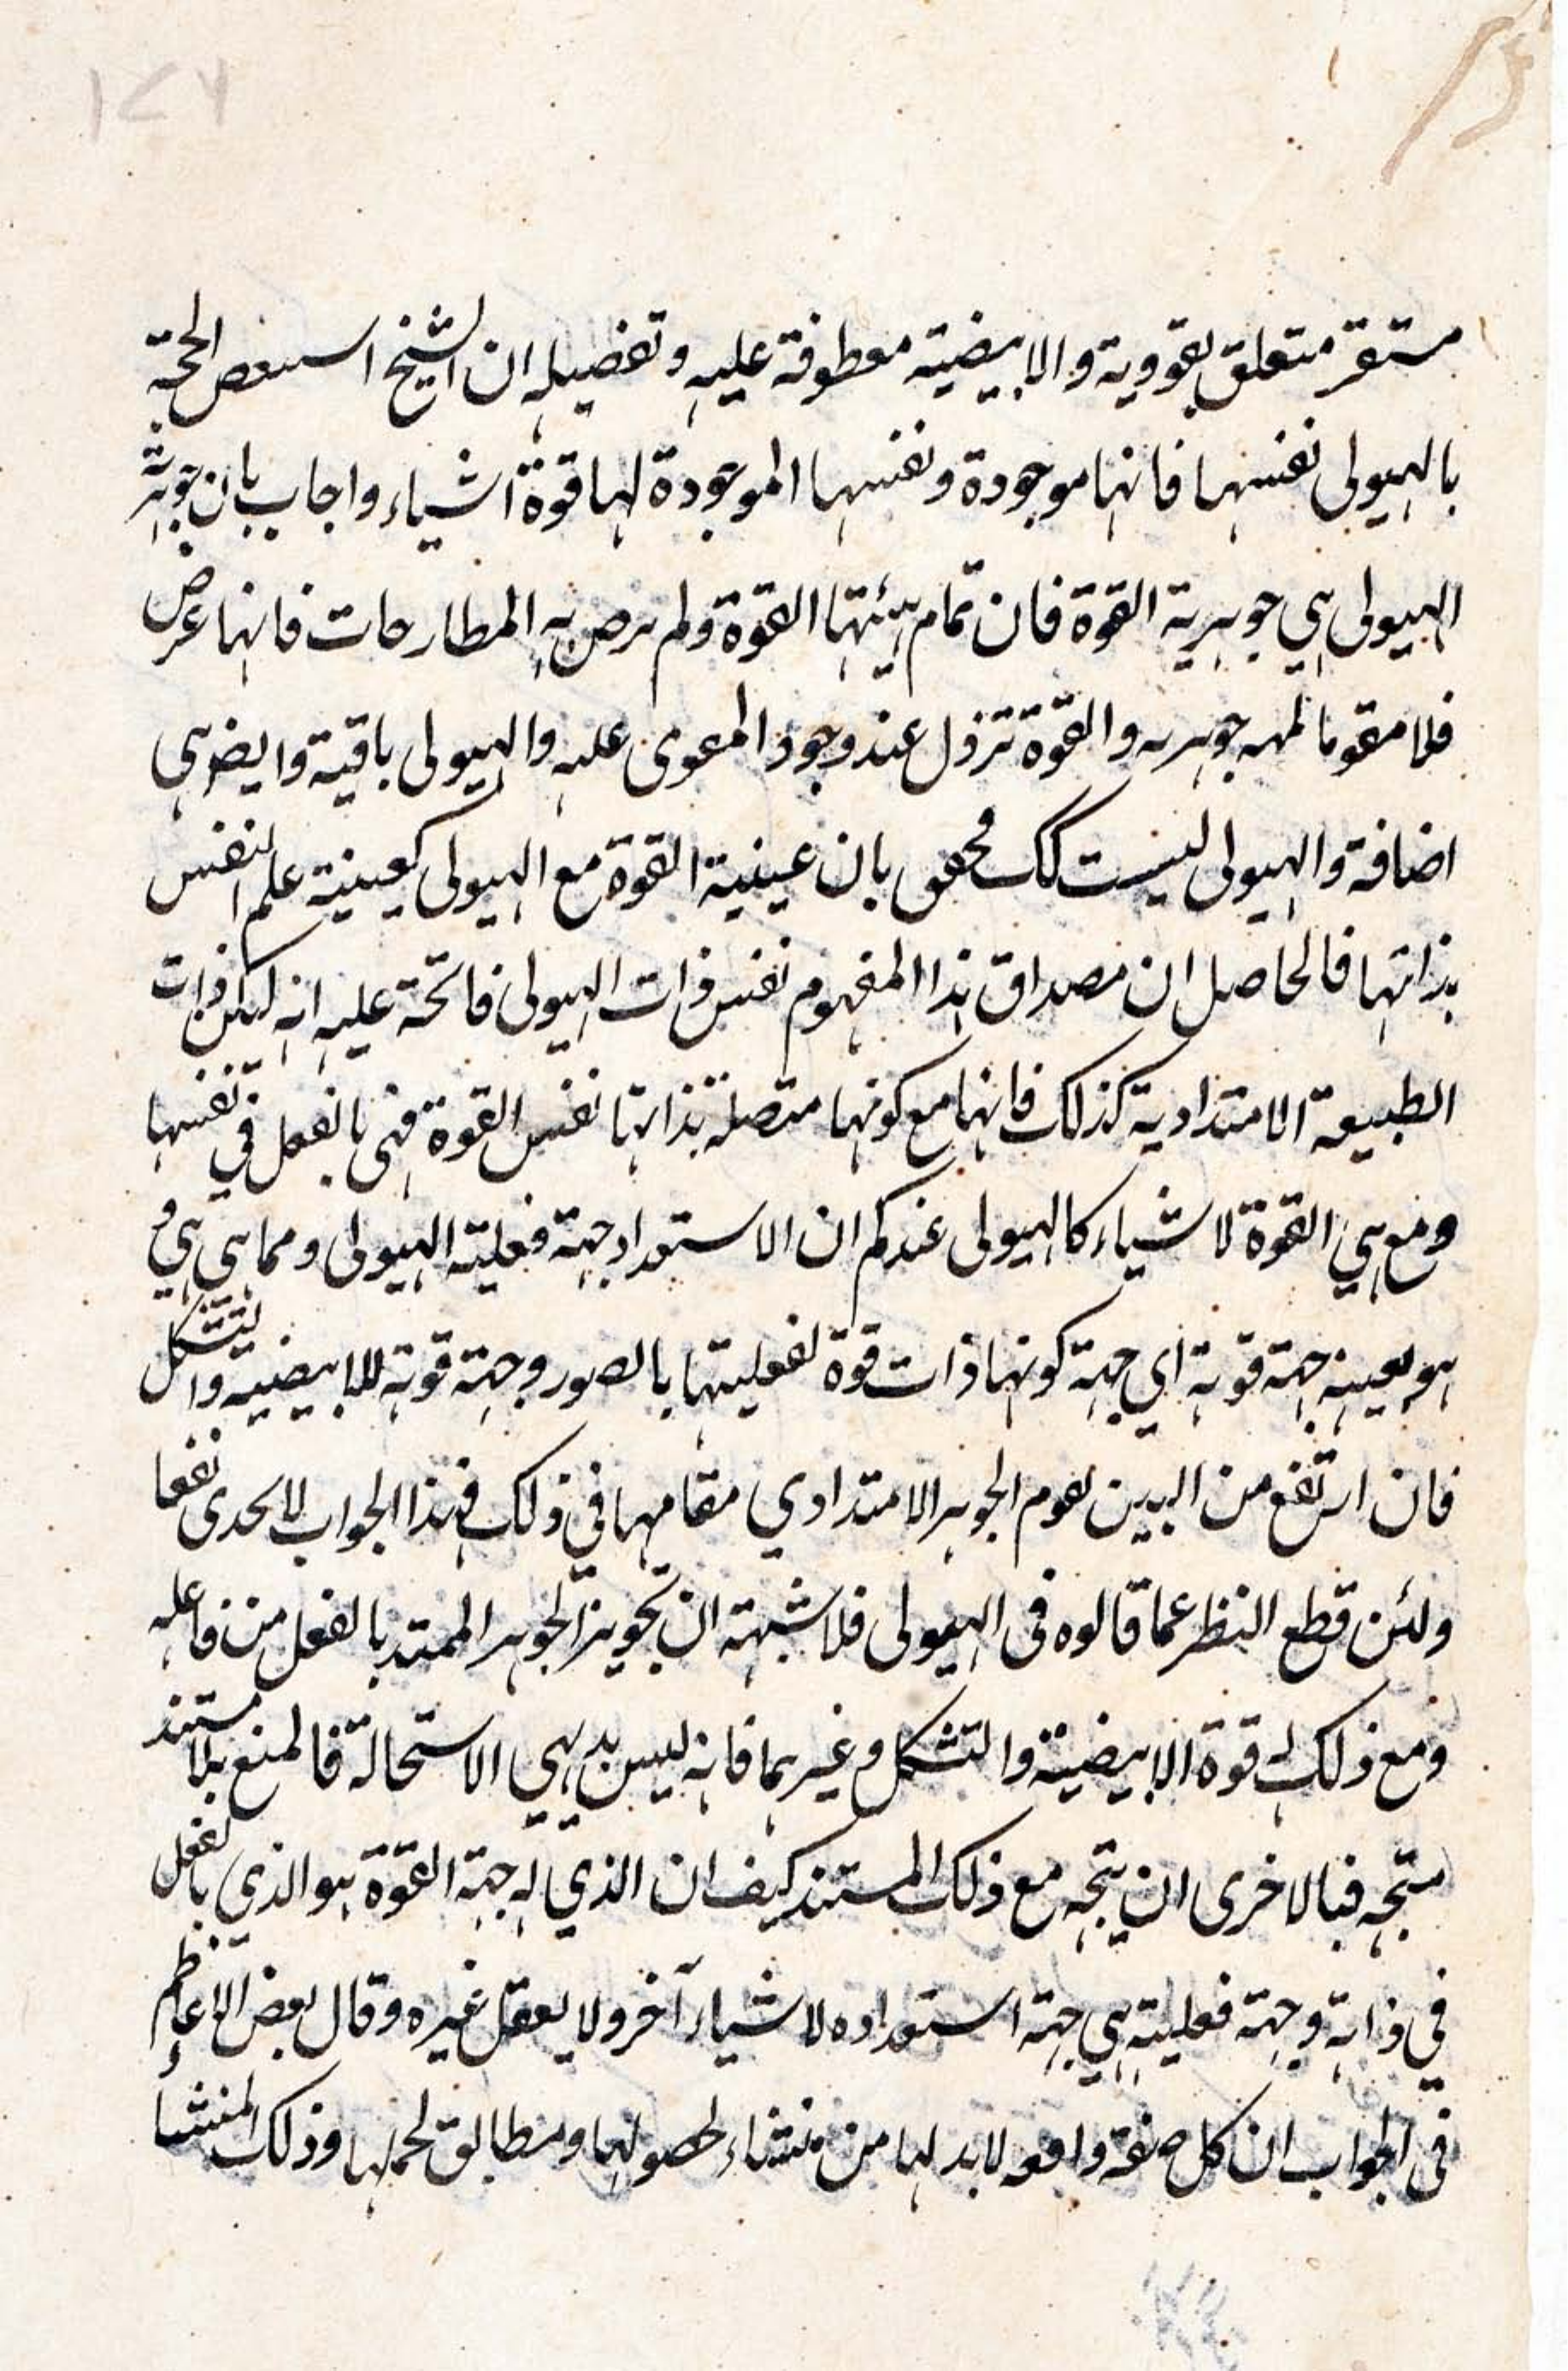 ١٢٦
مستقر متعلق بقووية والابيضية معطوفة عليه وتفصيله ان الشيخ استنقض الحجة
بالهيولى نفسها فانها موجودة ونفسها الموجودة لها قوة اشياء واجاب بان جوهرية
الهيولى هي جوهرية القوة فان تمام هيئتها القوة ولم يرض به المطارحات فانها عرض
فلا مقوما والقوة تزول عند وجود المقوى عليه والهيولى باقية وايض هي
اضافة والهيولى ليست كك بان عينية القوة مع الهيولى كعينية علم النفس
بذاتها فالحاصل ان مصداق هذا المفهوم نفس ذات الهيولى فاتجه عليه انه ليكن ذات
الطبيعة الامتدادية كذلك فانها مع كونها متصلة بذاتها نفس القوة فهي بالفعل في نفسها
ومع هي القوة لاشياء كالهيولى عندكم ان الاستعداد جهة فعلية الهيولى ومما هي هي
هو بعينه جهة قوية اي جهة كونها ذات قوة لفعليتها بالصور وجهة قوته للابيضية والتشكل
فان ارتفع من البين يقوم الجوهر الامتدادي مقامها في ذلك فهذا الجواب لا يجدى نفعا
ولئن قطع النظر عما قالوه في الهيولى فلا شبهة ان تجويز الجوهر الممتد بالفعل من فاعله
ومع ذلك له قوة الابيضية والتشكل وغيرهما فانه ليس بديهي الاستحالة فالمنع بلا مستند
متجه فبالاخرى ان يتجه مع ذلك المستند كيف ان الذي له جهة القوة هو الذي بالفعل
في ذاته وجهة فعليته هي جهة استعداده لاشياء آخر ولا يعقل غيره وقال بعض الاعاظم
في الجواب ان كل صفة واقعه لا بد لها من منشاء لحصولها ومطابق لحملها وذلك المنشأ